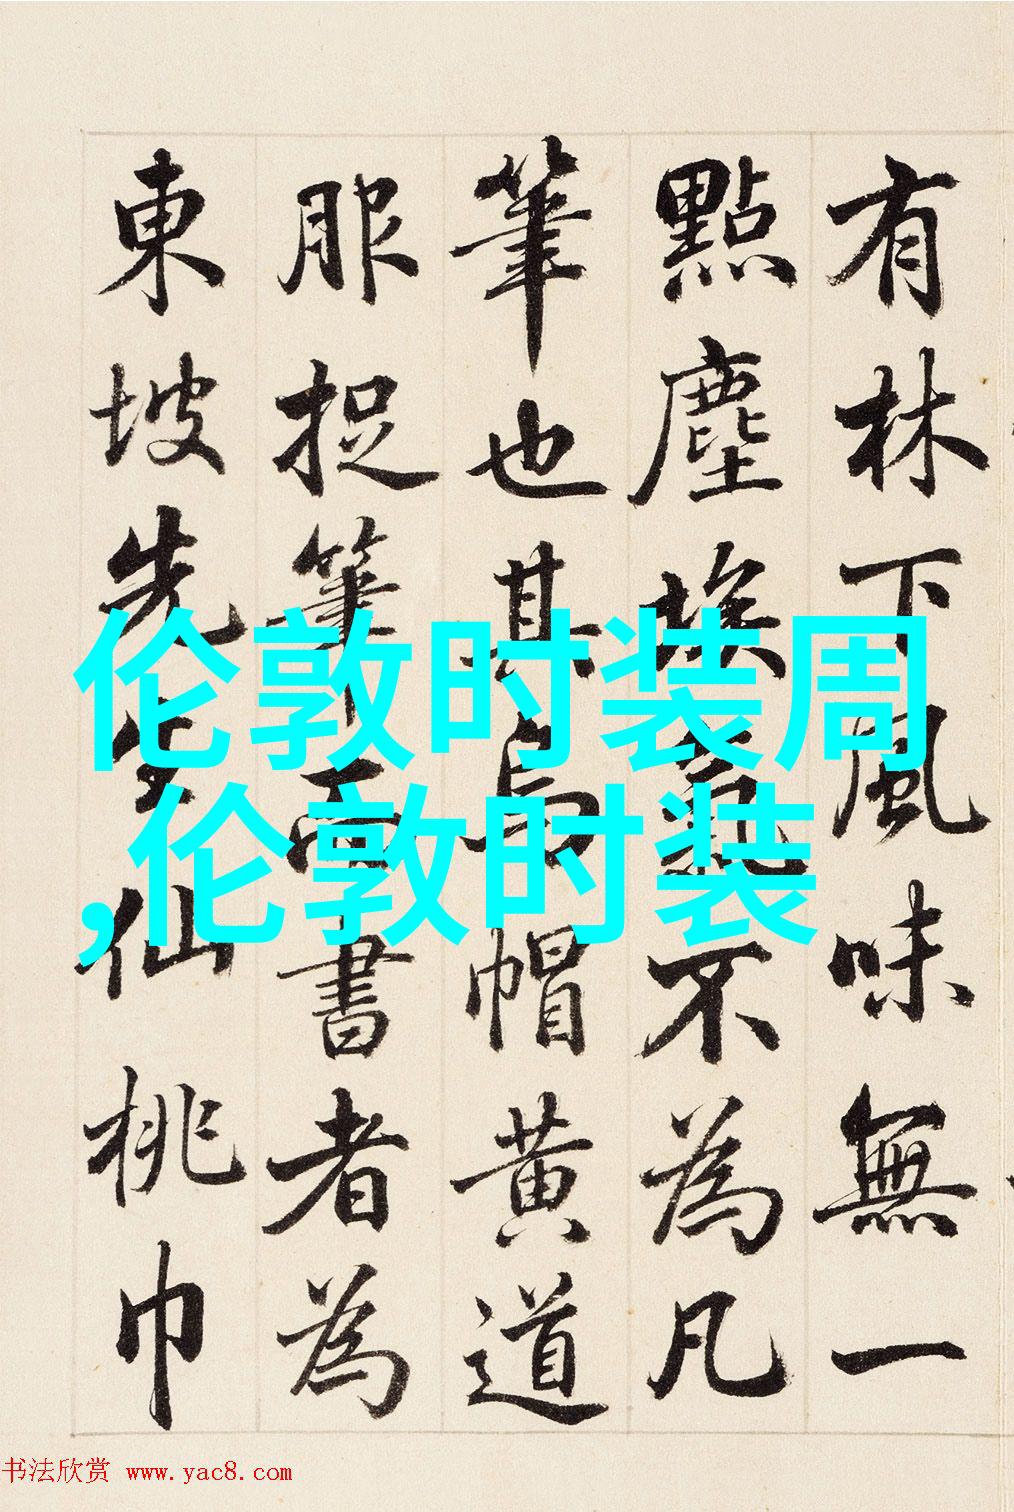 有林下風味無一
點塵埃氣不為凡
筆也其烏帽黃道
服捉筆而書者為
東坡先生仙桃巾
伦敦时装周
,伦敦时装
书法欣赏 www.yac8.com